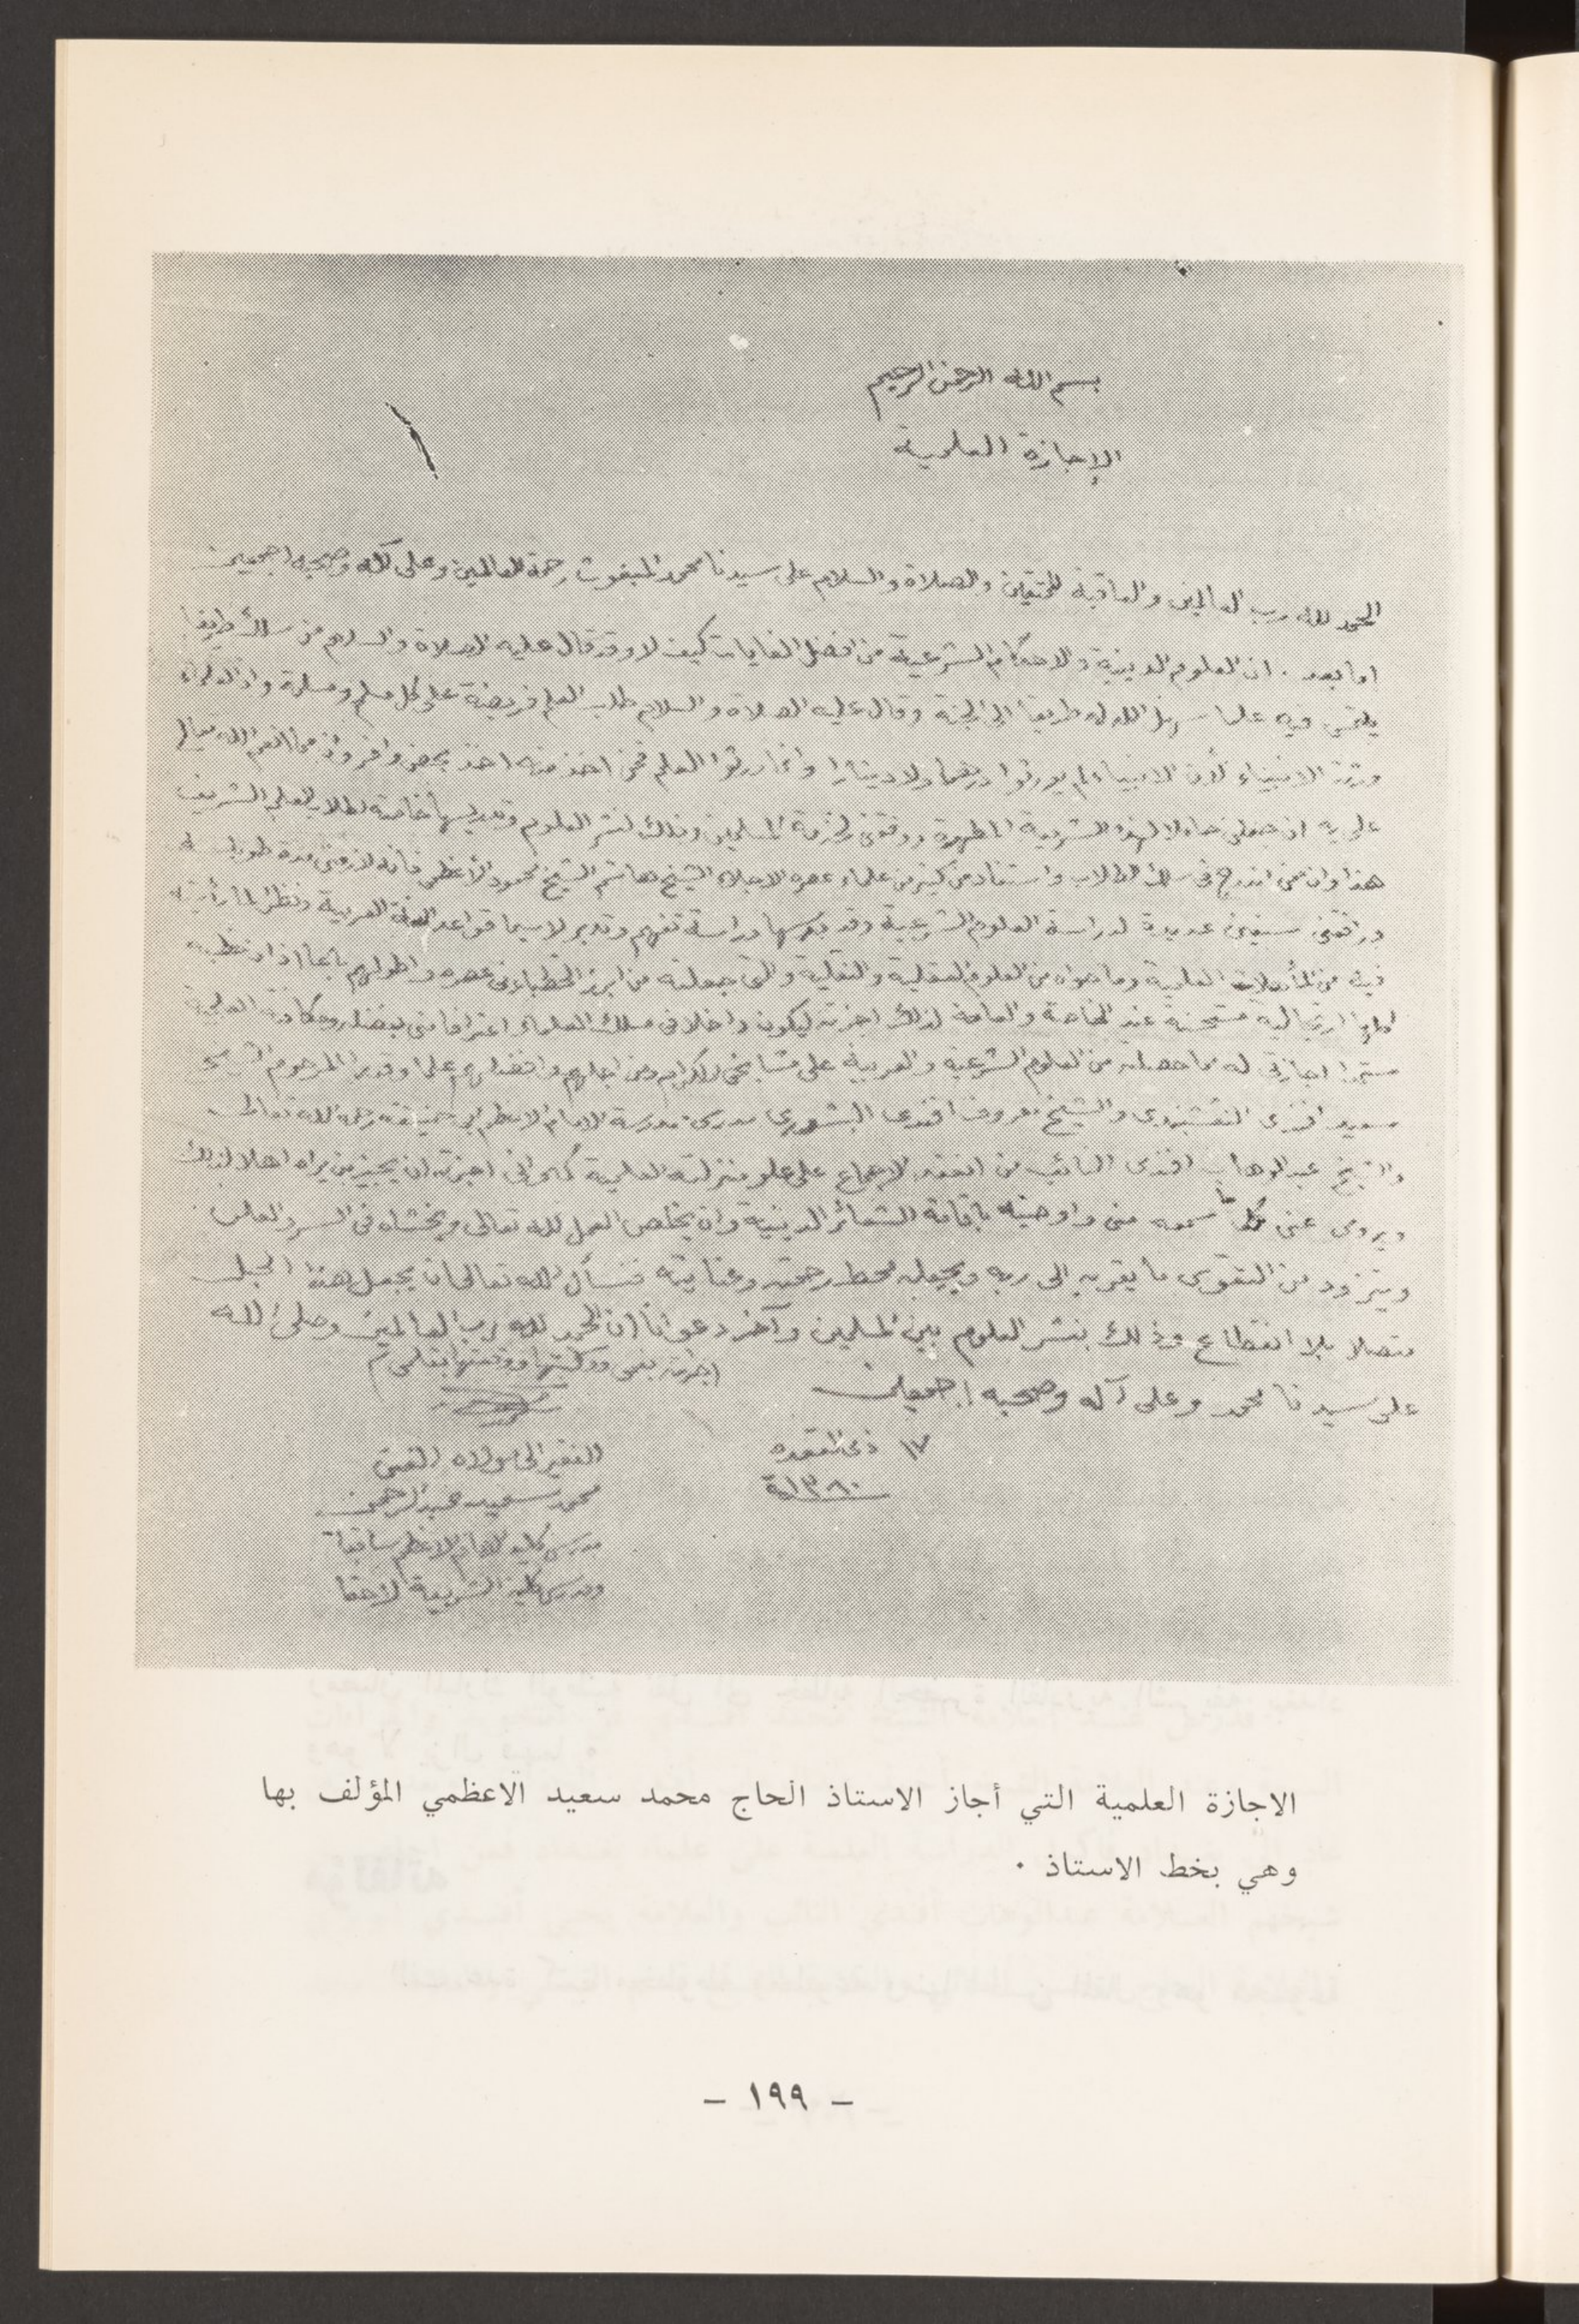 بسم الله الرحمن الرحيم
الإجازة العلمية
الحمد لله رب العالمين والعاقبة للمتقين والصلاة والسلام على سيدنا محمد المبعوث رحمة للعالمين وعلى آله وصحبه اجمعين
اما بعد . ان العلوم الدينية والاحكام الشرعية من افضل الغايات كيف لا وقد قال عليه الصلاة والسلام من سلك طريقا
يلتمس فيه علما سهل الله له طريقا الى الجنة وقال عليه الصلاة والسلام طلب العلم فريضة على كل مسلم ومسلمة وان العلماء
ورثة الانبياء لأن الانبياء لم يورثوا درهما ولا دينارا وانما ورثوا العلم فمن اخذ منه اخذ بحظ وافر وان مما انعم الله تعالى
علي به ان جعلني حاملا لهذه الشريعة المطهرة ووفقني لخدمة المسلمين وذلك لنشر العلوم وتدريسها خاصة لطلاب العلم الشريف
هذا وان ممن اندرج في سلك الطلاب واستفاد من كثير من علماء عصره الاجلاء الشيخ هاشم الشيخ محمود الأعظمي فانه لازمني مدة طويلة
ورافقني سنين عديدة لدراسة العلوم الشرعية وقد درسها دراسة تفهم وتدبر لا سيما قواعد اللغة العربية ونظرا لما رأيته
فيه من المأهلات العلمية وما حواه من العلوم العقلية والنقلية والتي جعلته من ابرز الخطباء في عصره واطولهم باعا اذا خطب
ارتجالية مستحسنة عند الخاصة والعامة لذلك اجزته ليكون داخلا في سلك العلماء اعترافا مني بفضله ومكانته العلمية
اجازتي له مما حصلته من العلوم الشرعية والعربية على مشايخي الكرام ومن اجلهم وافضلهم علما وقدرا المرحوم الشيخ
سعيد افندي النقشبندي والشيخ معروف افندي مدرس مدرسة الامام الاعظم ابي حنيفة رحمه الله تعالى
والشيخ عبد الوهاب افندي النائب من انعقد الاجماع على علو منزلته العلمية كما واني اجزته ان يجيز من يراه اهلا لذلك
ويروي عني كل ما سمعه مني واوصيته باقامة الشعائر الدينية وان يخلص العمل لله تعالى ويخشاه في السر والعلن
ويتزود من التقوى ما يقربه الى ربه ويجعله محط رحمته وعنايته فنسأل الله تعالى ان يجعل هذا الحبل
متصلا بلا انقطاع وذلك بنشر العلوم بين المسلمين وآخر دعوانا ان الحمد لله رب العالمين وصلى الله
على سيدنا محمد وعلى آله وصحبه اجمعين
١٧ ذي القعدة
١٣٨٠
الفقير الى مولاه الغني
محمد سعيد عبد الرحمن
مدرس كلية الامام الاعظم سابقا
ومدرس كلية الشريعة لاحقا
الاجازة العلمية التي أجاز الاستاذ الحاج محمد سعيد الاعظمي المؤلف بها
وهي بخط الاستاذ .
– ١٩٩ –